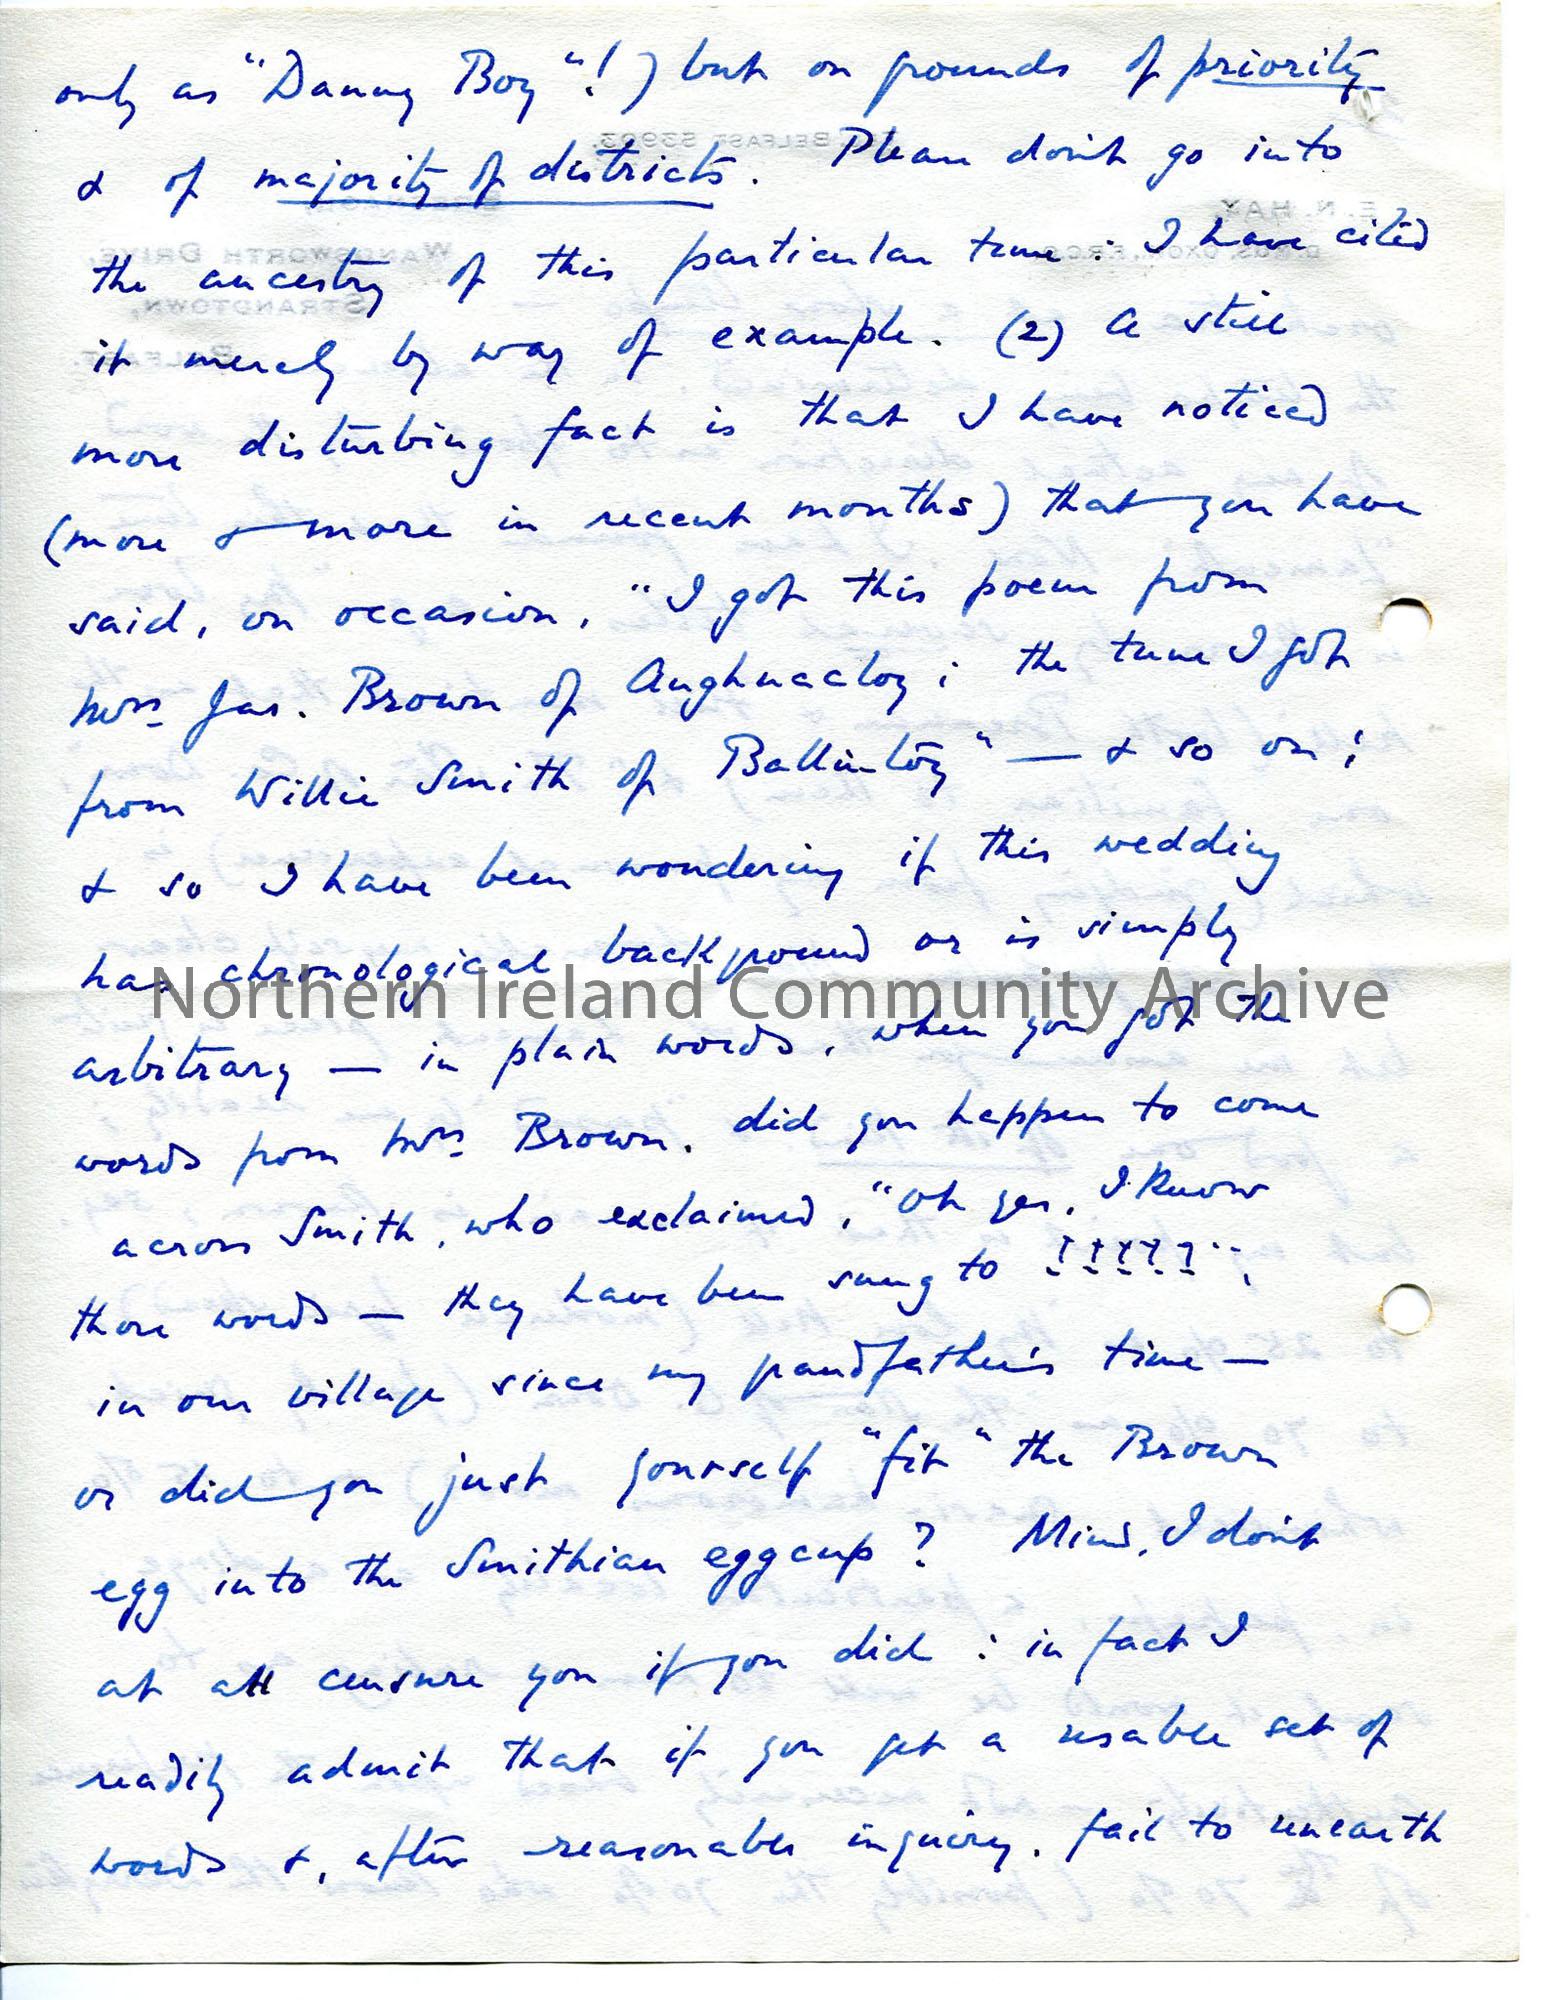 only as "Danny Boy"!) but on grounds of priority
& of majority of districts. Please don't go into
the ancestry of this particular tune: I have cited
it merely by way of example. (2) A still
more disturbing fact is that I have noticed
(more & more in recent months) that you have
said, on occasion, "I got this poem from
Mrs Jas. Brown of Aughnacloy; the tune I got
from Willie Smith of Ballintoy" — & so on;
& so I have been wondering if this wedding
has chronological background or is simply
Northern Ireland Community Archive
arbitrary — in plain words, when you got the
words from Mrs Brown, did you happen to come
across Smith, who exclaimed, "Oh yes, I know
those words — they have been sung to !!!!!
in our village since my grandfather's time —
or did you just yourself "fit" the Brown
egg into the Smithian eggcup? Mind, I don't
at all censure you if you did: in fact I
readily admit that if you get a usable set of
words &, after reasonable inquiry, fail to unearth